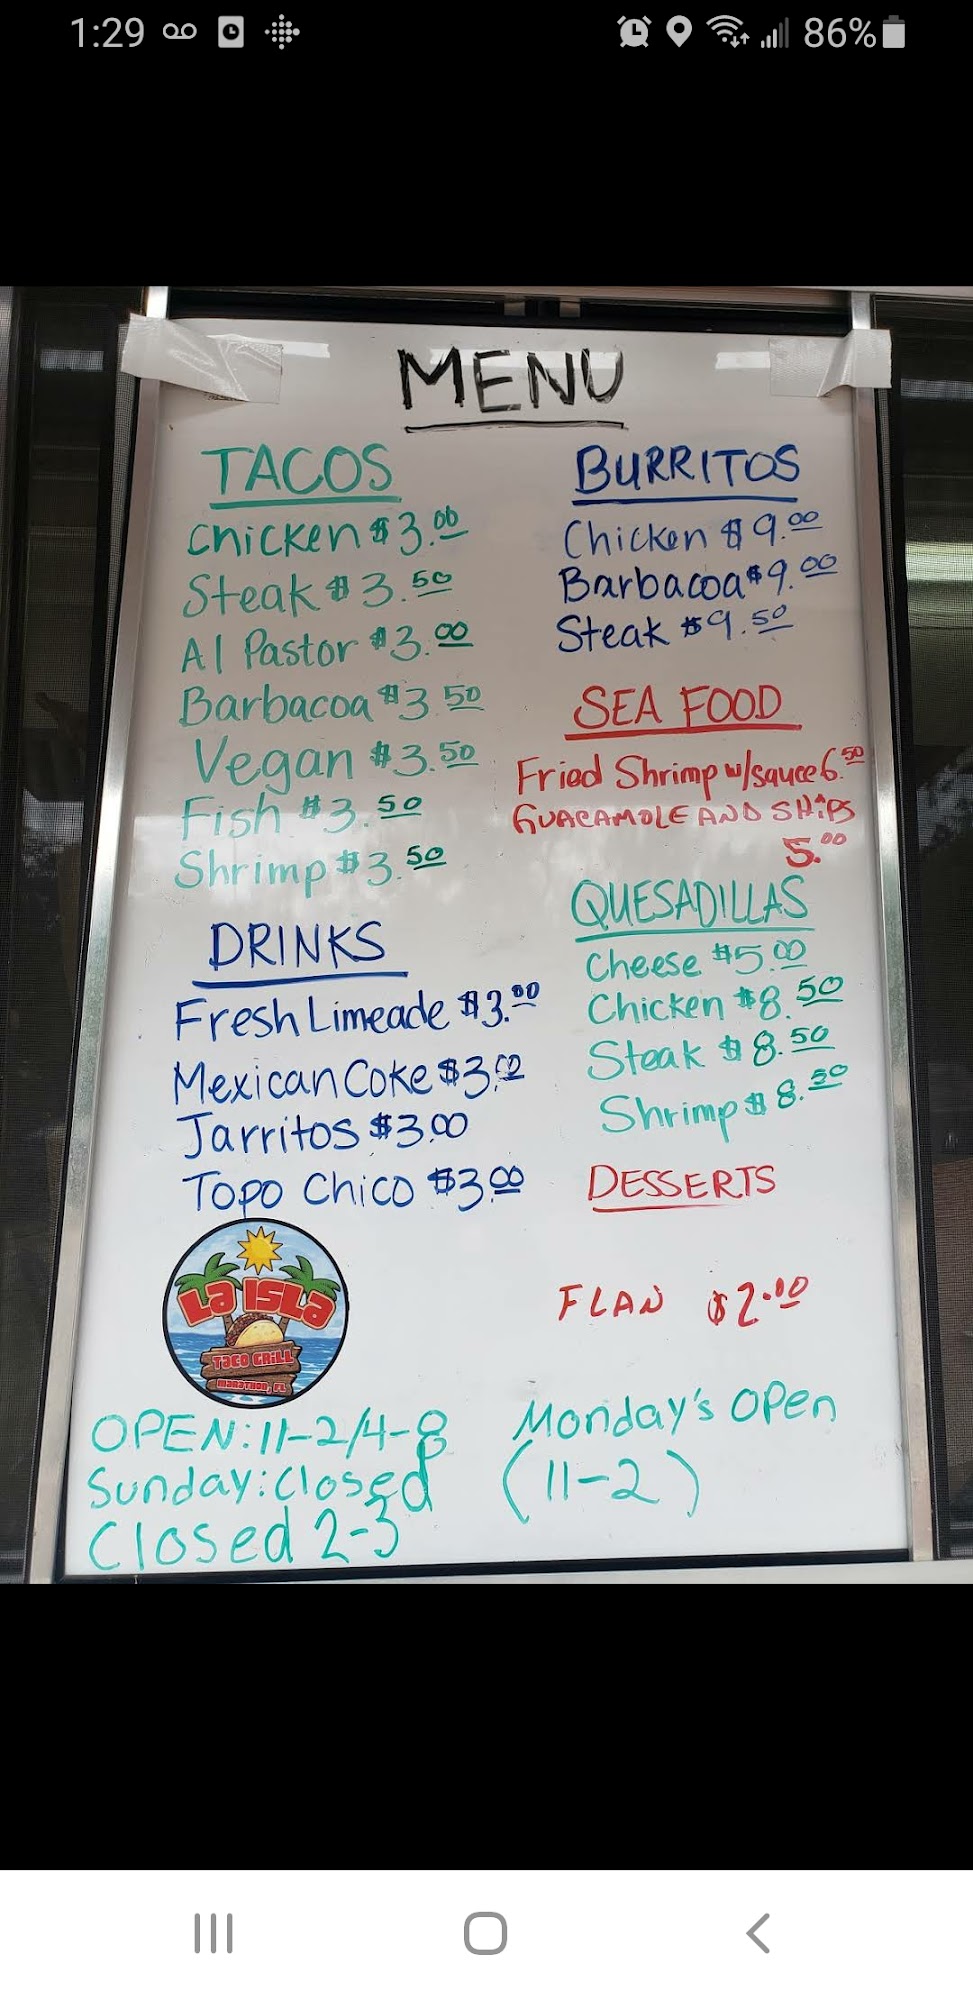 1:29
86%
MENU
TACOS
Chicken $3.00
Steak $3.50
Al Pastor $3.00
Barbacoa $3.50
Vegan $3.50
Fish $3.50
Shrimp $3.50
DRINKS
Fresh Limeade $3.00
Mexican Coke $3.00
Jarritos $3.00
Topo Chico $3.00
BURRITOS
Chicken $9.00
Barbacoa $9.00
Steak $9.50
SEA FOOD
Fried Shrimp w/sauce 6.50
GUACAMOLE AND SHIPS
5.00
QUESADILLAS
Cheese $5.00
Chicken $8.50
Steak $8.50
Shrimp $8.50
DESSERTS
FLAN $2.00
LA ISLA
TACO GRILL
MARATHON, FL
OPEN: 11-2/4-8
Sunday: Closed
Closed 2-3
Monday's Open
(11-2)